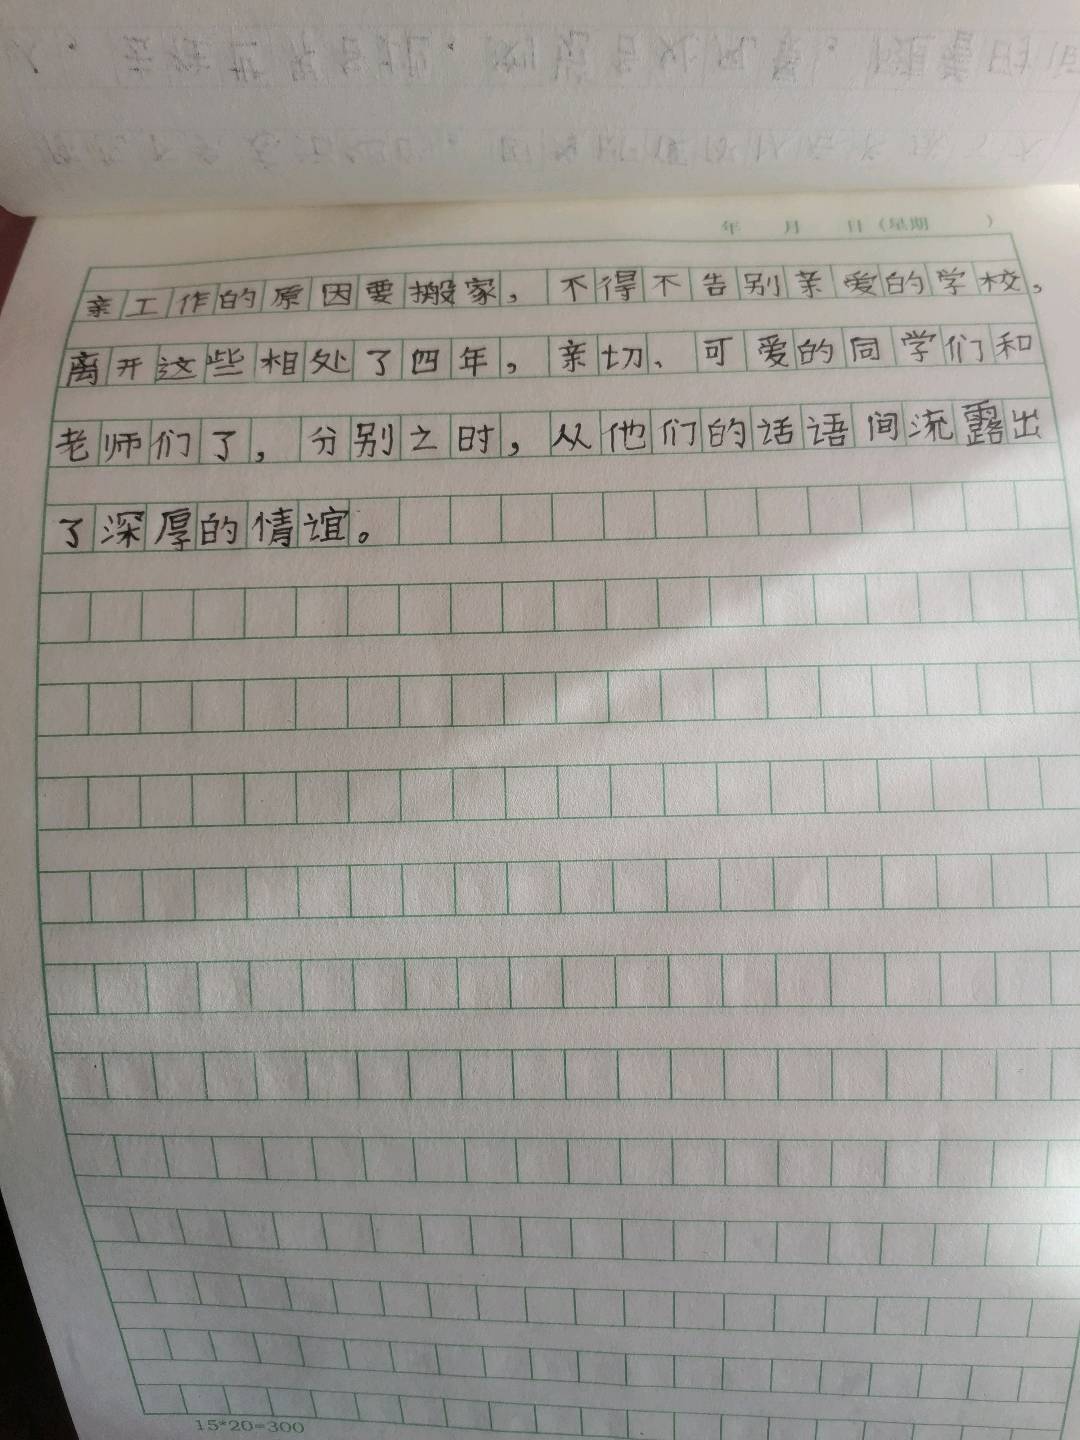 年 月 日（星期 ）
亲工作的原因要搬家，不得不告别亲爱的学校，
离开这些相处了四年，亲切、可爱的同学们和
老师们了，分别之时，从他们的话语间流露出
了深厚的情谊。
15*20=300